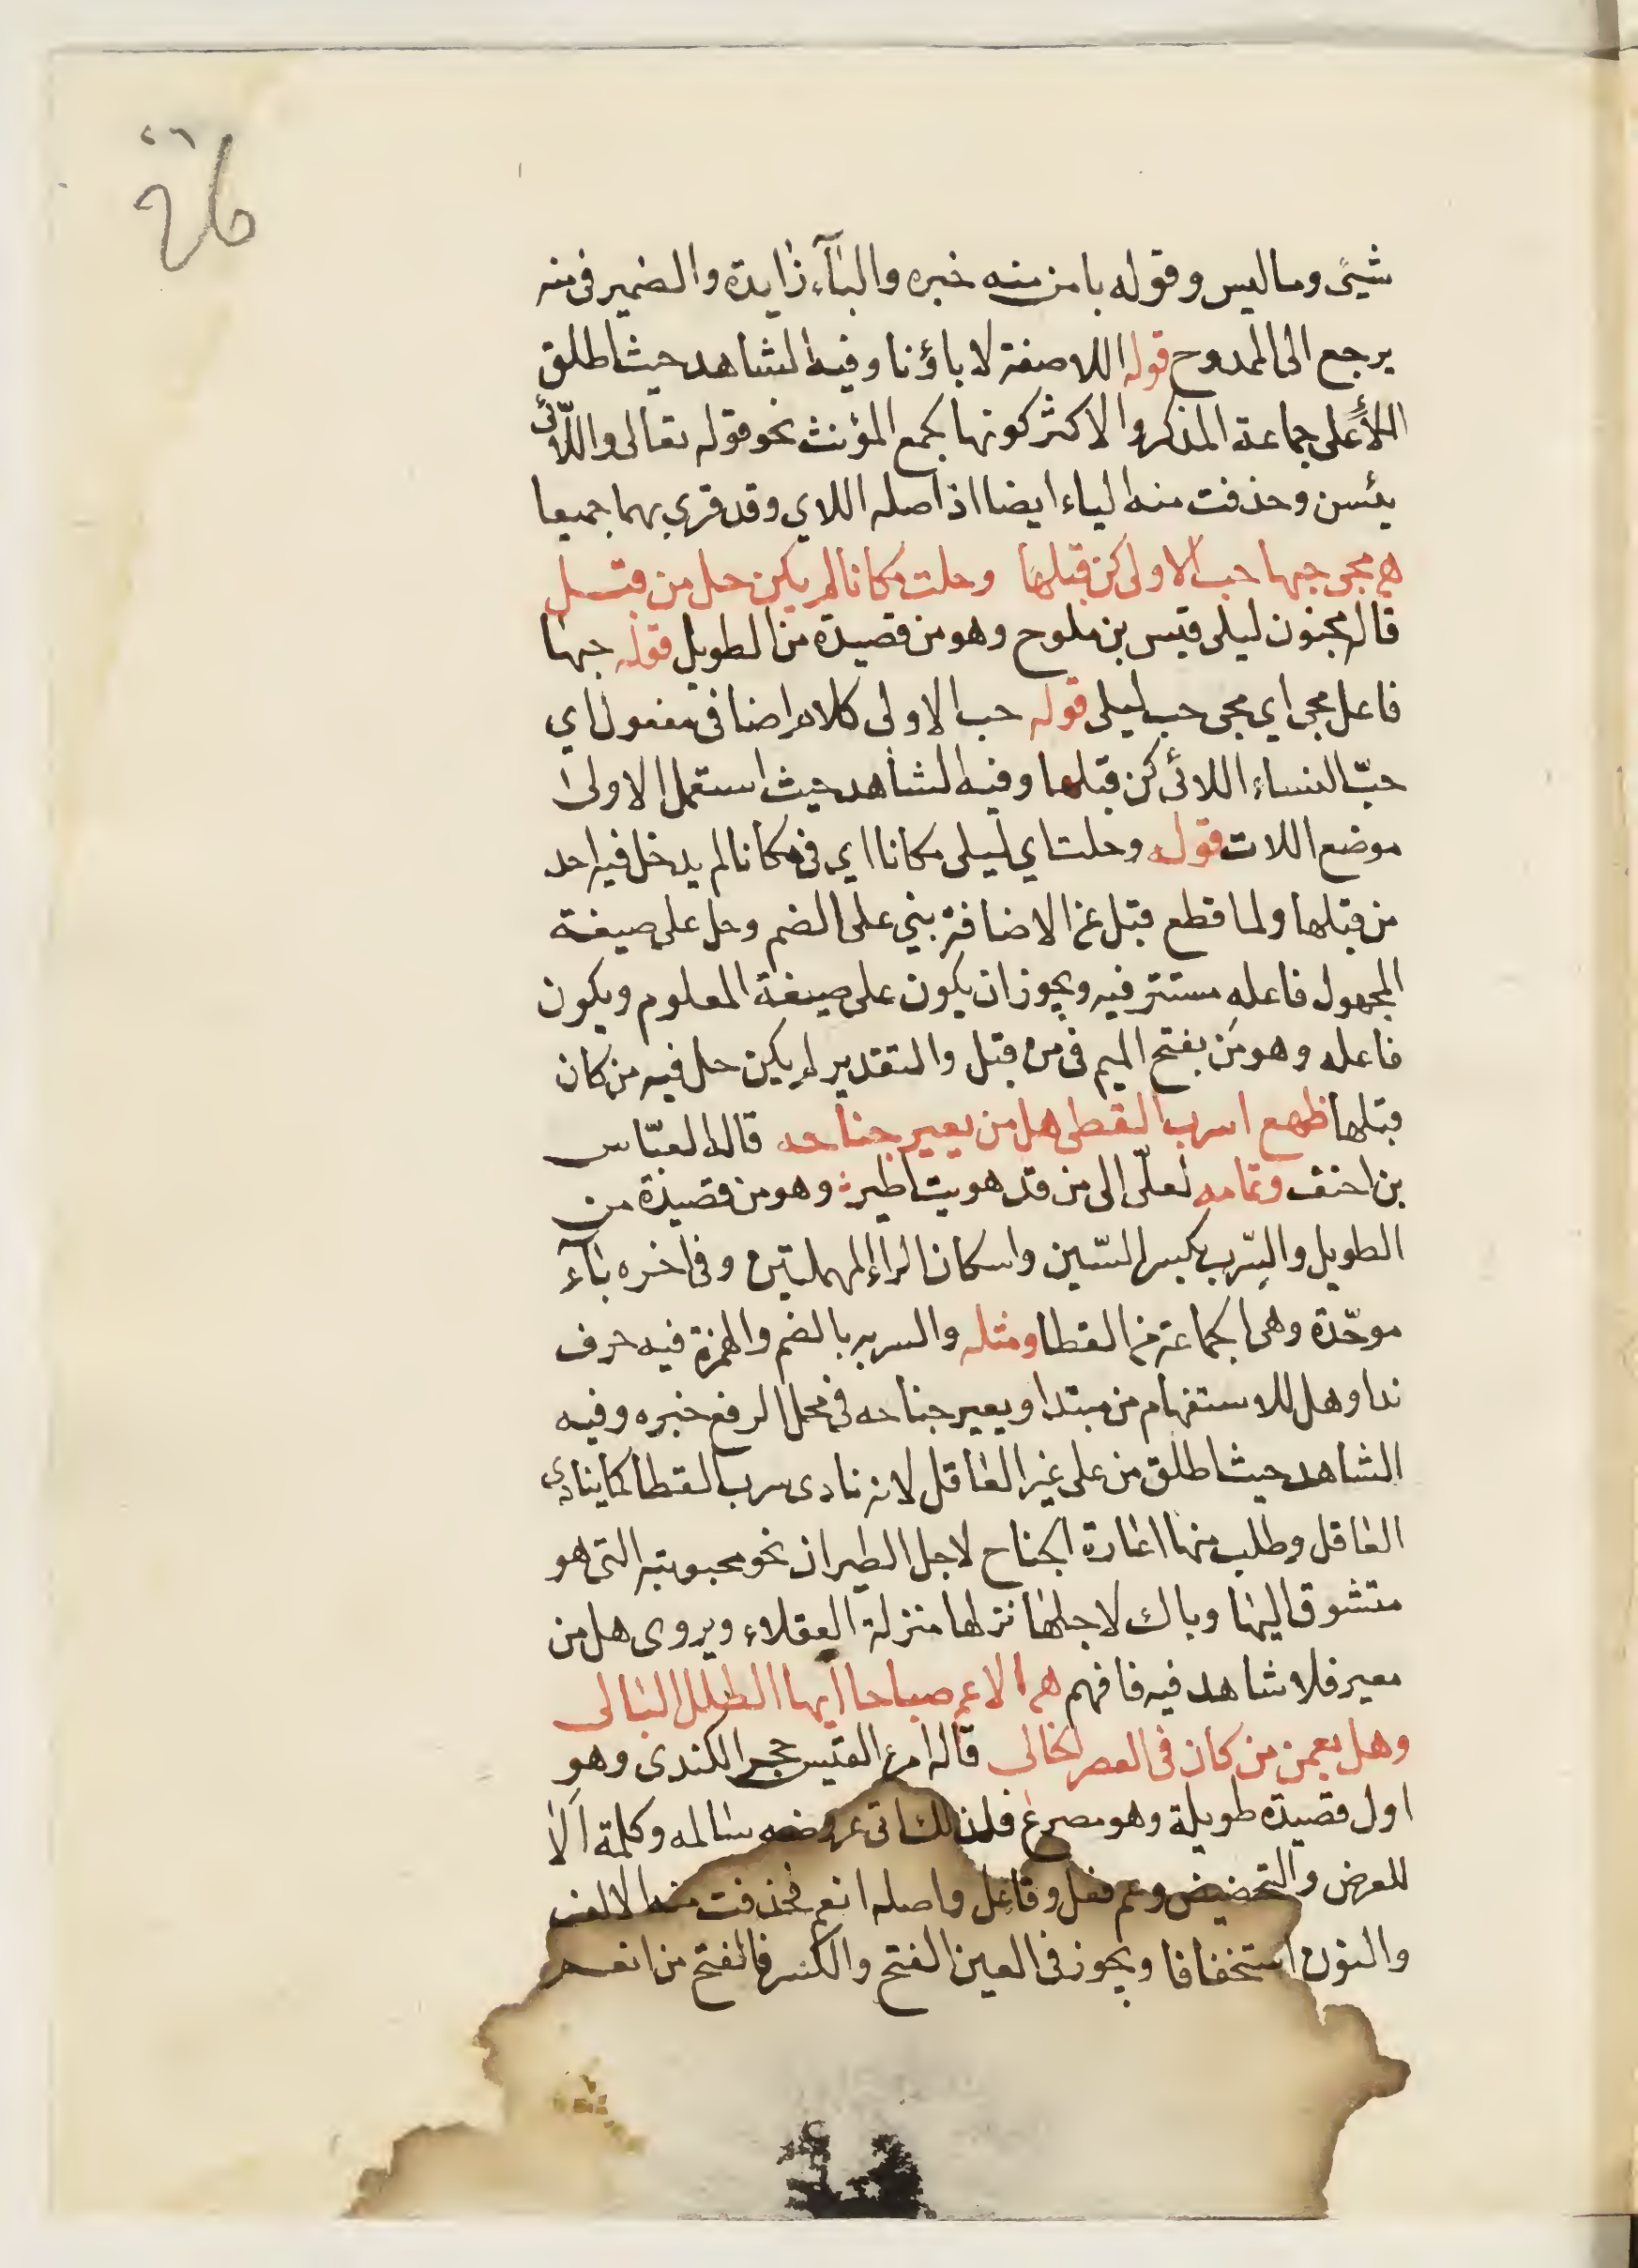 شيئ وما ليس وقوله بامن منه خبره والباء زايدة والضمير في منه
يرجع الى الممدوح قوله اللا صفة لاباؤنا وفيه الشاهد حيث اطلق
اللاء على جماعة المذكر والاكثر كونها لجمع المؤنث نحو قوله تعالى واللائى
يئسن وحذفت منه الياء ايضا اذ اصله اللاي وقد قري بهما جميعا
محى حبها حب الاولى كن قبلها وحلت مكانا لم يكن حل من قبل
قاله مجنون ليلى قيس بن ملوح وهو من قصيدة من الطويل قوله حبها
فاعل محى اي محى حب ليلى قوله حب الاولى كلام اضافي مفعول اي
حبّ النساء اللائى كن قبلها وفيه الشاهد حيث استعمل الاولى
موضع اللات قوله وحلت اي ليلى مكانا اي في مكانا لم يدخل فيه احد
من قبلها ولما قطع قبل عن الاضافة بني على الضم وحل على صيغة
المجهول فاعله مستتر فيه ويجوز ان يكون على صيغة المعلوم ويكون
فاعله وهو مَن بفتح الميم في من قبل والتقدير لم يكن حل فيه من كان
قبلها ظهع اسرب القطى هل من يعير جناحه قاله العبّاس
بن احنف وتمامه لعلّى الى من قد هويت اطير وهو من قصيدة من
الطويل والسِّرب بكسر السّين واسكان الراء المهملتين وفي اخره باء
موحّدة وهي الجماعة من القطا ومثله والسربه بالضم والهمزة فيه حرف
ندا وهل للاستفهام من مبتدا ويعير جناحه في محل الرفع خبره وفيه
الشاهد حيث اطلق من على غير العاقل لانه نادى سرب القطا كما ينادي
العاقل وطلب منها اعارة الجناح لاجل الطيران نحو محبوبته التي هو
متشوق اليها وباك لاجلها نزلها منزلة العقلاء ويروى هل من
معير فلا شاهد فيه فافهم هم الا عم صباحا ايها الطلل البالى
وهل يعمن من كان في العصر الخالى قاله امرء القيس حجر الكندى وهو
اول قصيدة طويلة وهو مصرع فلذلك اتى عروضه سالمه وكلمة اَلاَ
للعرض والتحضيض وعم فعل وفاعل واصله انعم فحذفت منه الالف
والنون استخفافا ويجوز في العين الفتح والكسر فالفتح من انعم